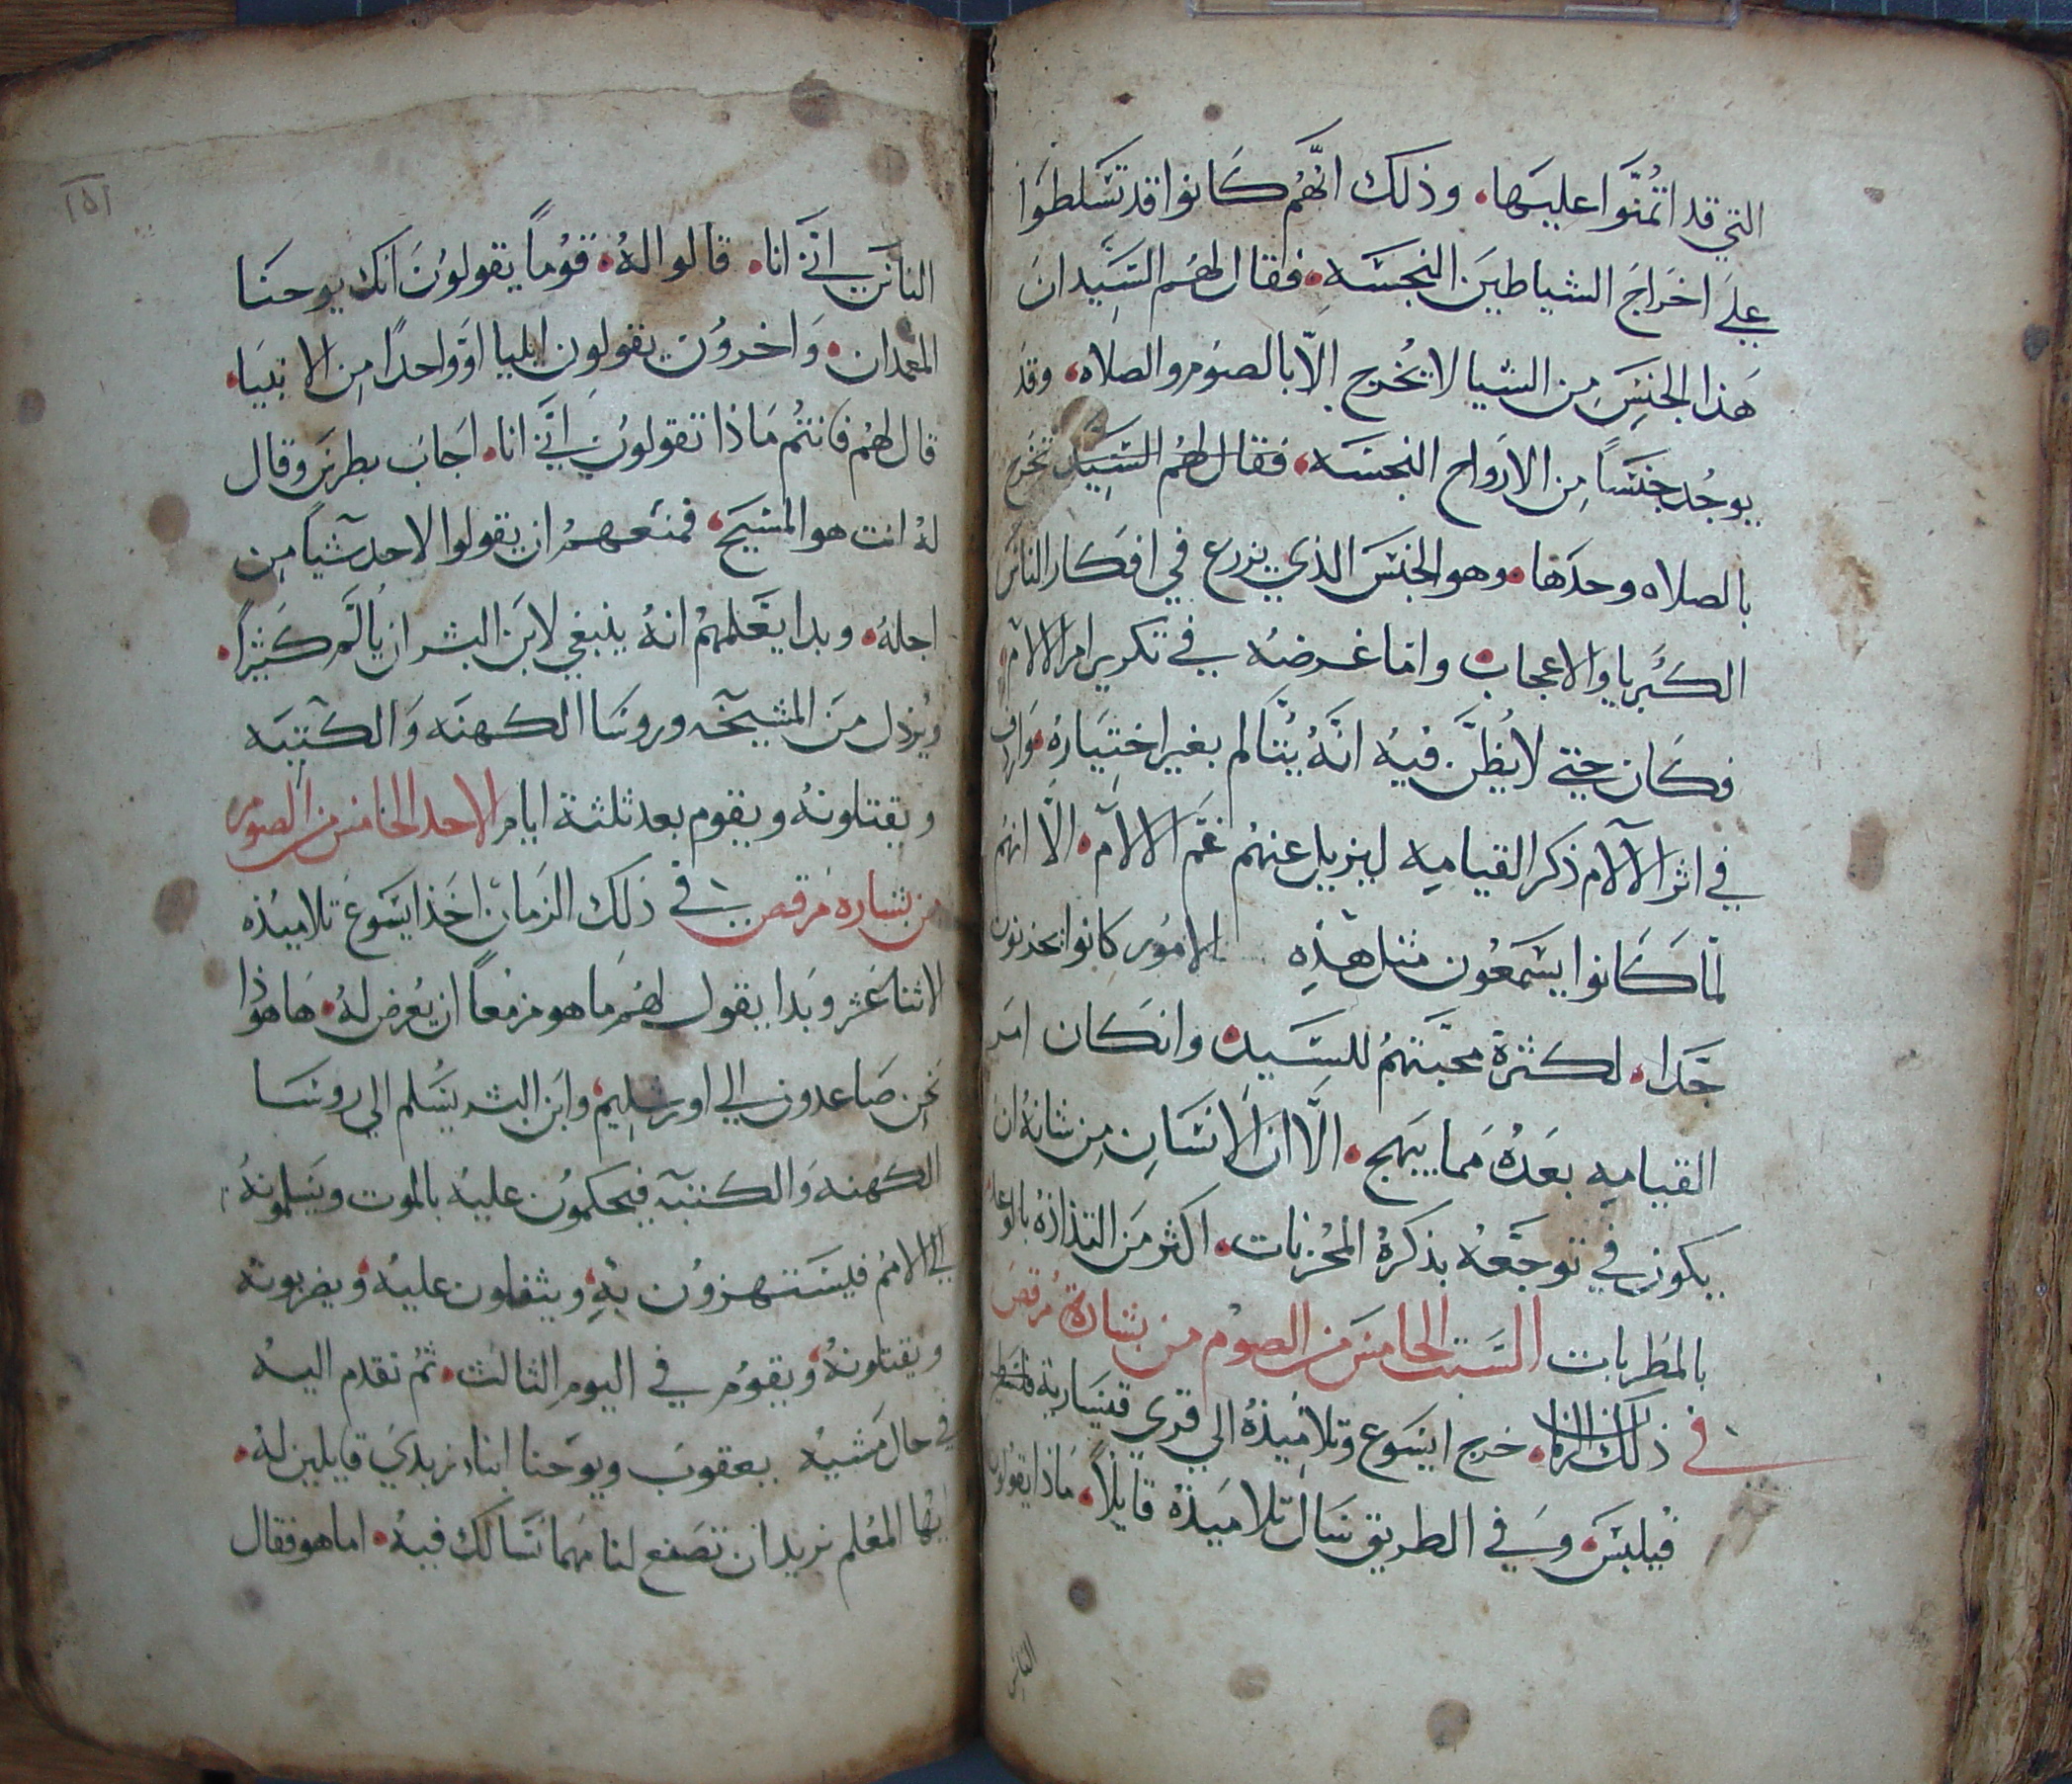 التي قد اتمنوا عليها. وذلك انهم كانوا قد تسلطوا
علي اخراج الشياطين النجسه. فقال لهم السيد ان
هذا الجنس من الشيا لا يخرج الا بالصوم والصلاه. وقد
يوجد جنساً من الارواح النجسه. فقال لهم السيد تخرج
بالصلاه وحدها. وهو الجنس الذي يزرع في افكار الناس
الكبريا والاعجاب واما غرضه في تكرير امر الالام.
فكان حتي لا يظن فيه انه يتالم بغير اختياره. واردف
في اثر الالام ذكر القيامه ليزيل عنهم غم الالام. الا انهم
لما كانوا يسمعون مثل هذه الامور كانوا يحزنون
جدا. لكثرة محبتهم للسيد. وان كان امر
القيامه بعده مما يبهج. الا ان الانسان من شانه ان
يكون في توجعه بذكره المحزنات. اكثر من التذاذه بالوعد
بالمطربات السبت الخامس من الصوم من بشارة مرقص
في ذلك الزمان. خرج ايسوع وتلاميذه الي قري قيسارية
فيلبس. وفي الطريق سال تلاميذه قايلاً. ماذا يقولون
الناس
١٥١
الناس اني انا. قالوا له. قوماً يقولون انك يوحنا
المعمدان. واخرون يقولون ايليا او واحداً من الانبيا.
قال لهم فانتم ماذا تقولون اني انا. اجاب بطرس وقال
له انت هو المسيح. فمنعهم ان يقولوا لاحد شياً من
اجله. وبدا يعلمهم انه ينبغي لابن البشر ان يالم كثيراً.
ويرذل من المشيخه وروسا الكهنه والكتبه
ويقتلونه ويقوم بعد ثلثة ايام الاحد الخامس من الصوم
من بشارة مرقص في ذلك الزمان اخذ ايسوع تلاميذه
الاثنا عشر وبدا يقول لهم ما هو مزمعاً ان يعرض له. ها هوذا
نحن صاعدون الي اورشليم. وابن البشر يسلم الي روسا
الكهنه والكتبه فيحكمون عليه بالموت ويسلمونه
الي الامم فيستهزون به. ويتفلون عليه. ويضربونه
ويقتلونه. ويقوم في اليوم الثالث. ثم تقدم اليه
في حال مشيه يعقوب ويوحنا ابناء زبدي قايلين له.
ايها المعلم نريد ان تصنع لنا مهما نسالك فيه. اما هو فقال